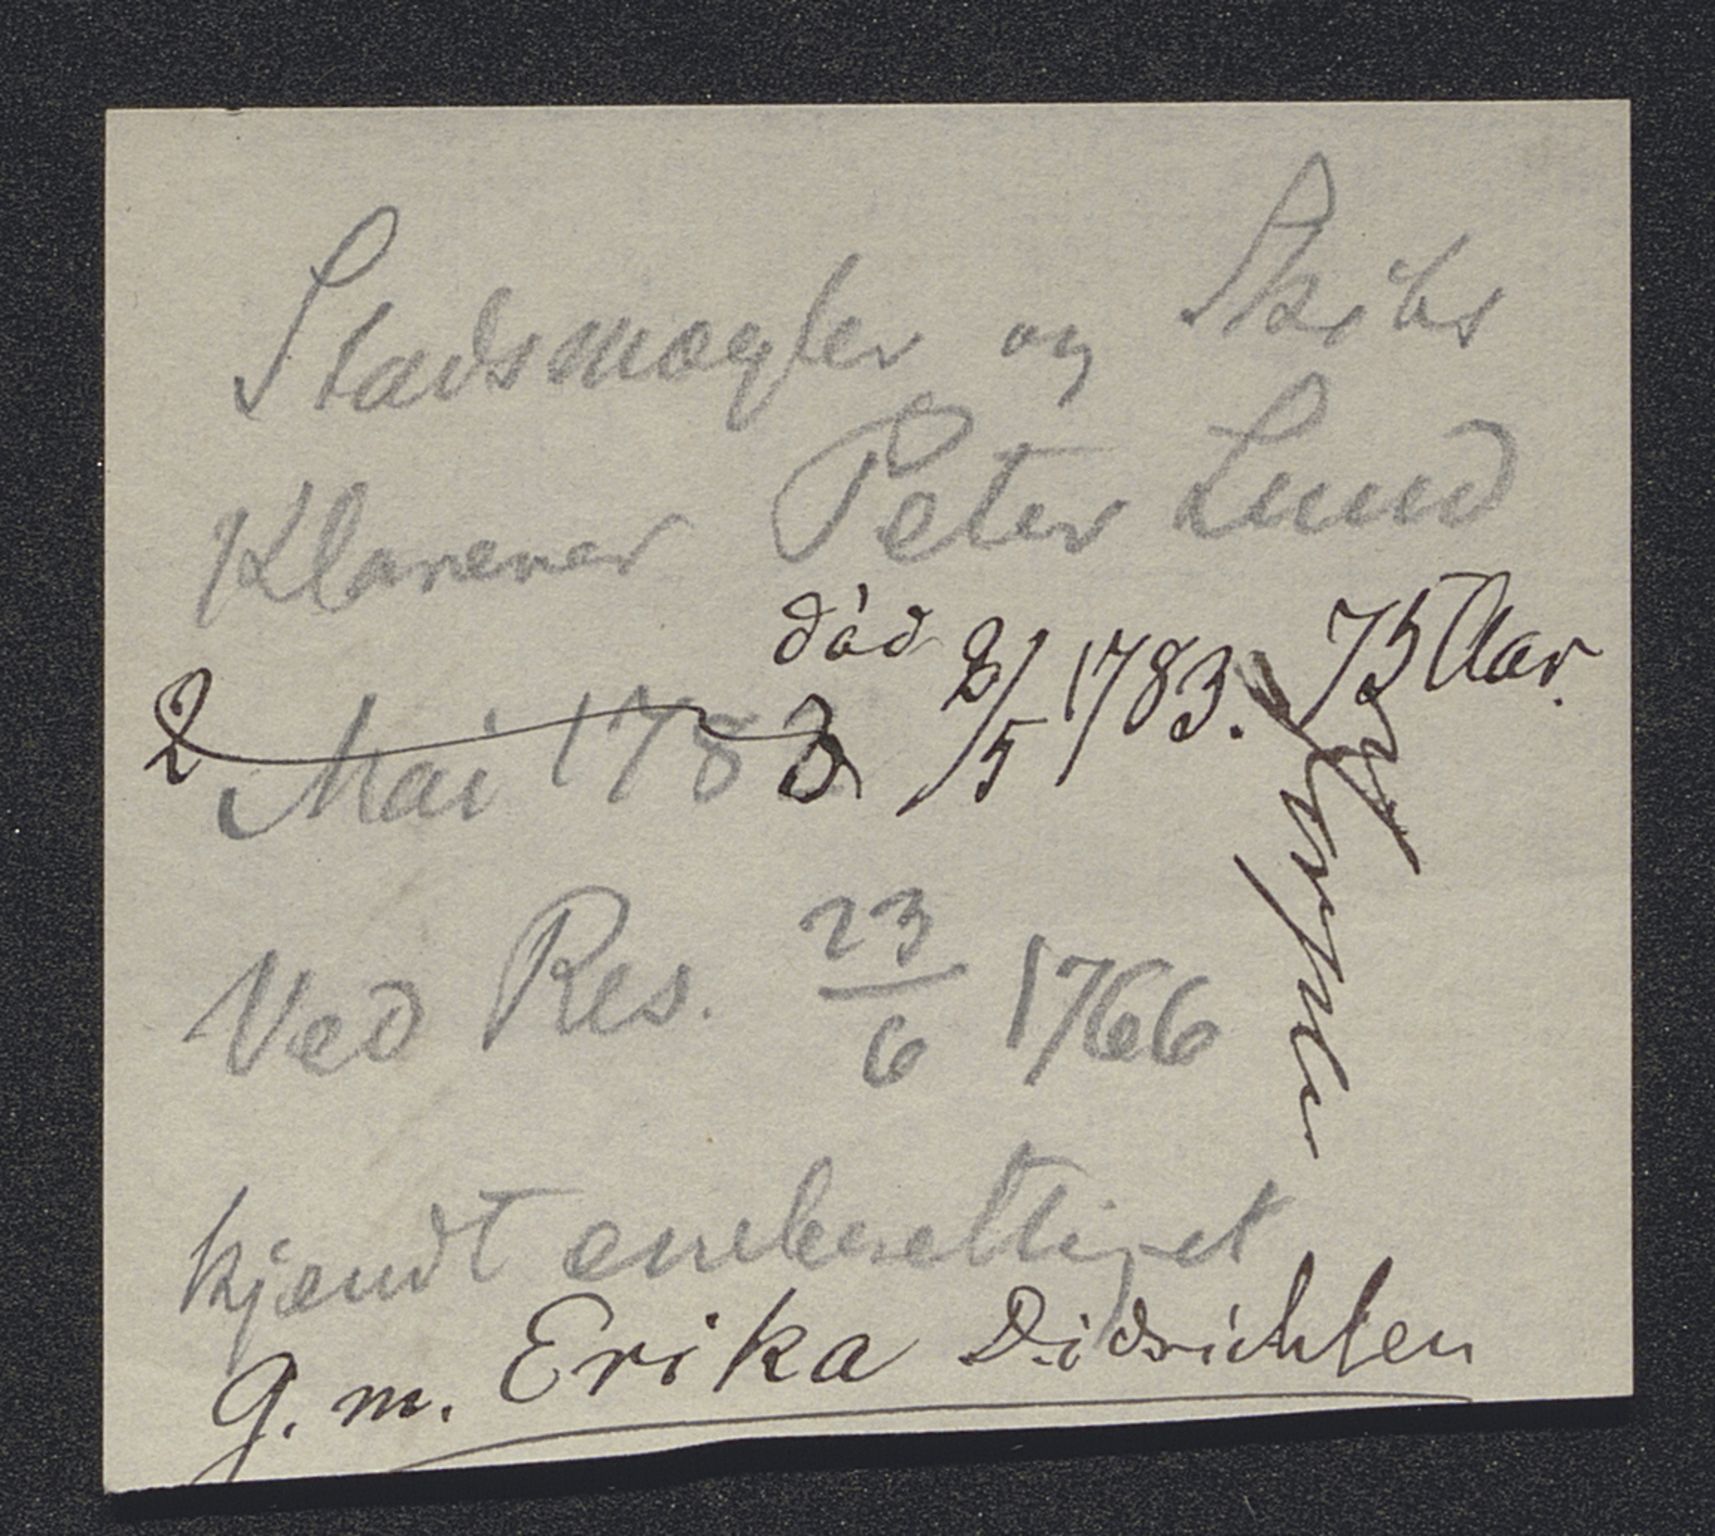 Stadsmægler og Skibs
Klarerer Peter Lund
død 2/5 1783. 75 Aar.
2 Mai 1783
Ved Res. 23/6 1766
kjendt eneberettiget
g. m. Erika Didrichsen